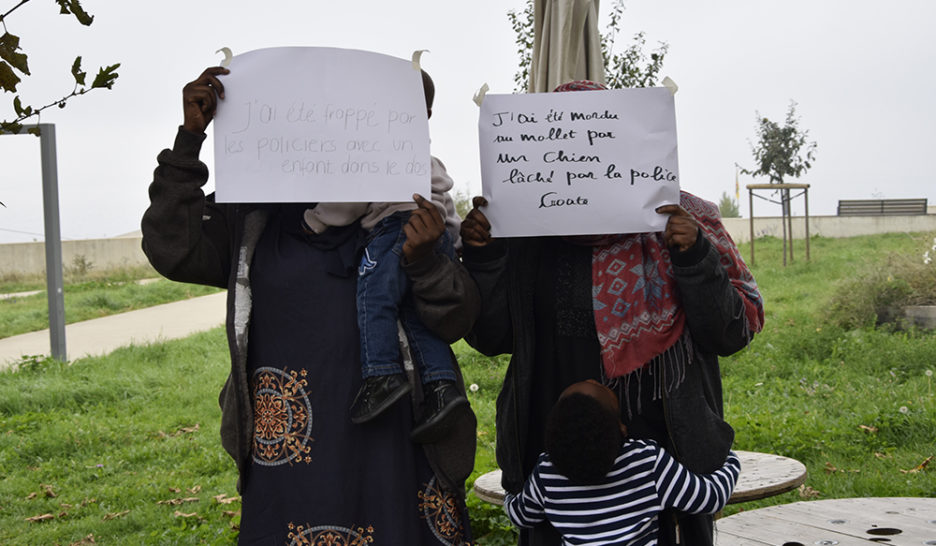 J'ai été frappé par
les policiers avec un
enfant dans le dos
J'ai été mordu
au mollet par
un chien
lâché par la police
Croate